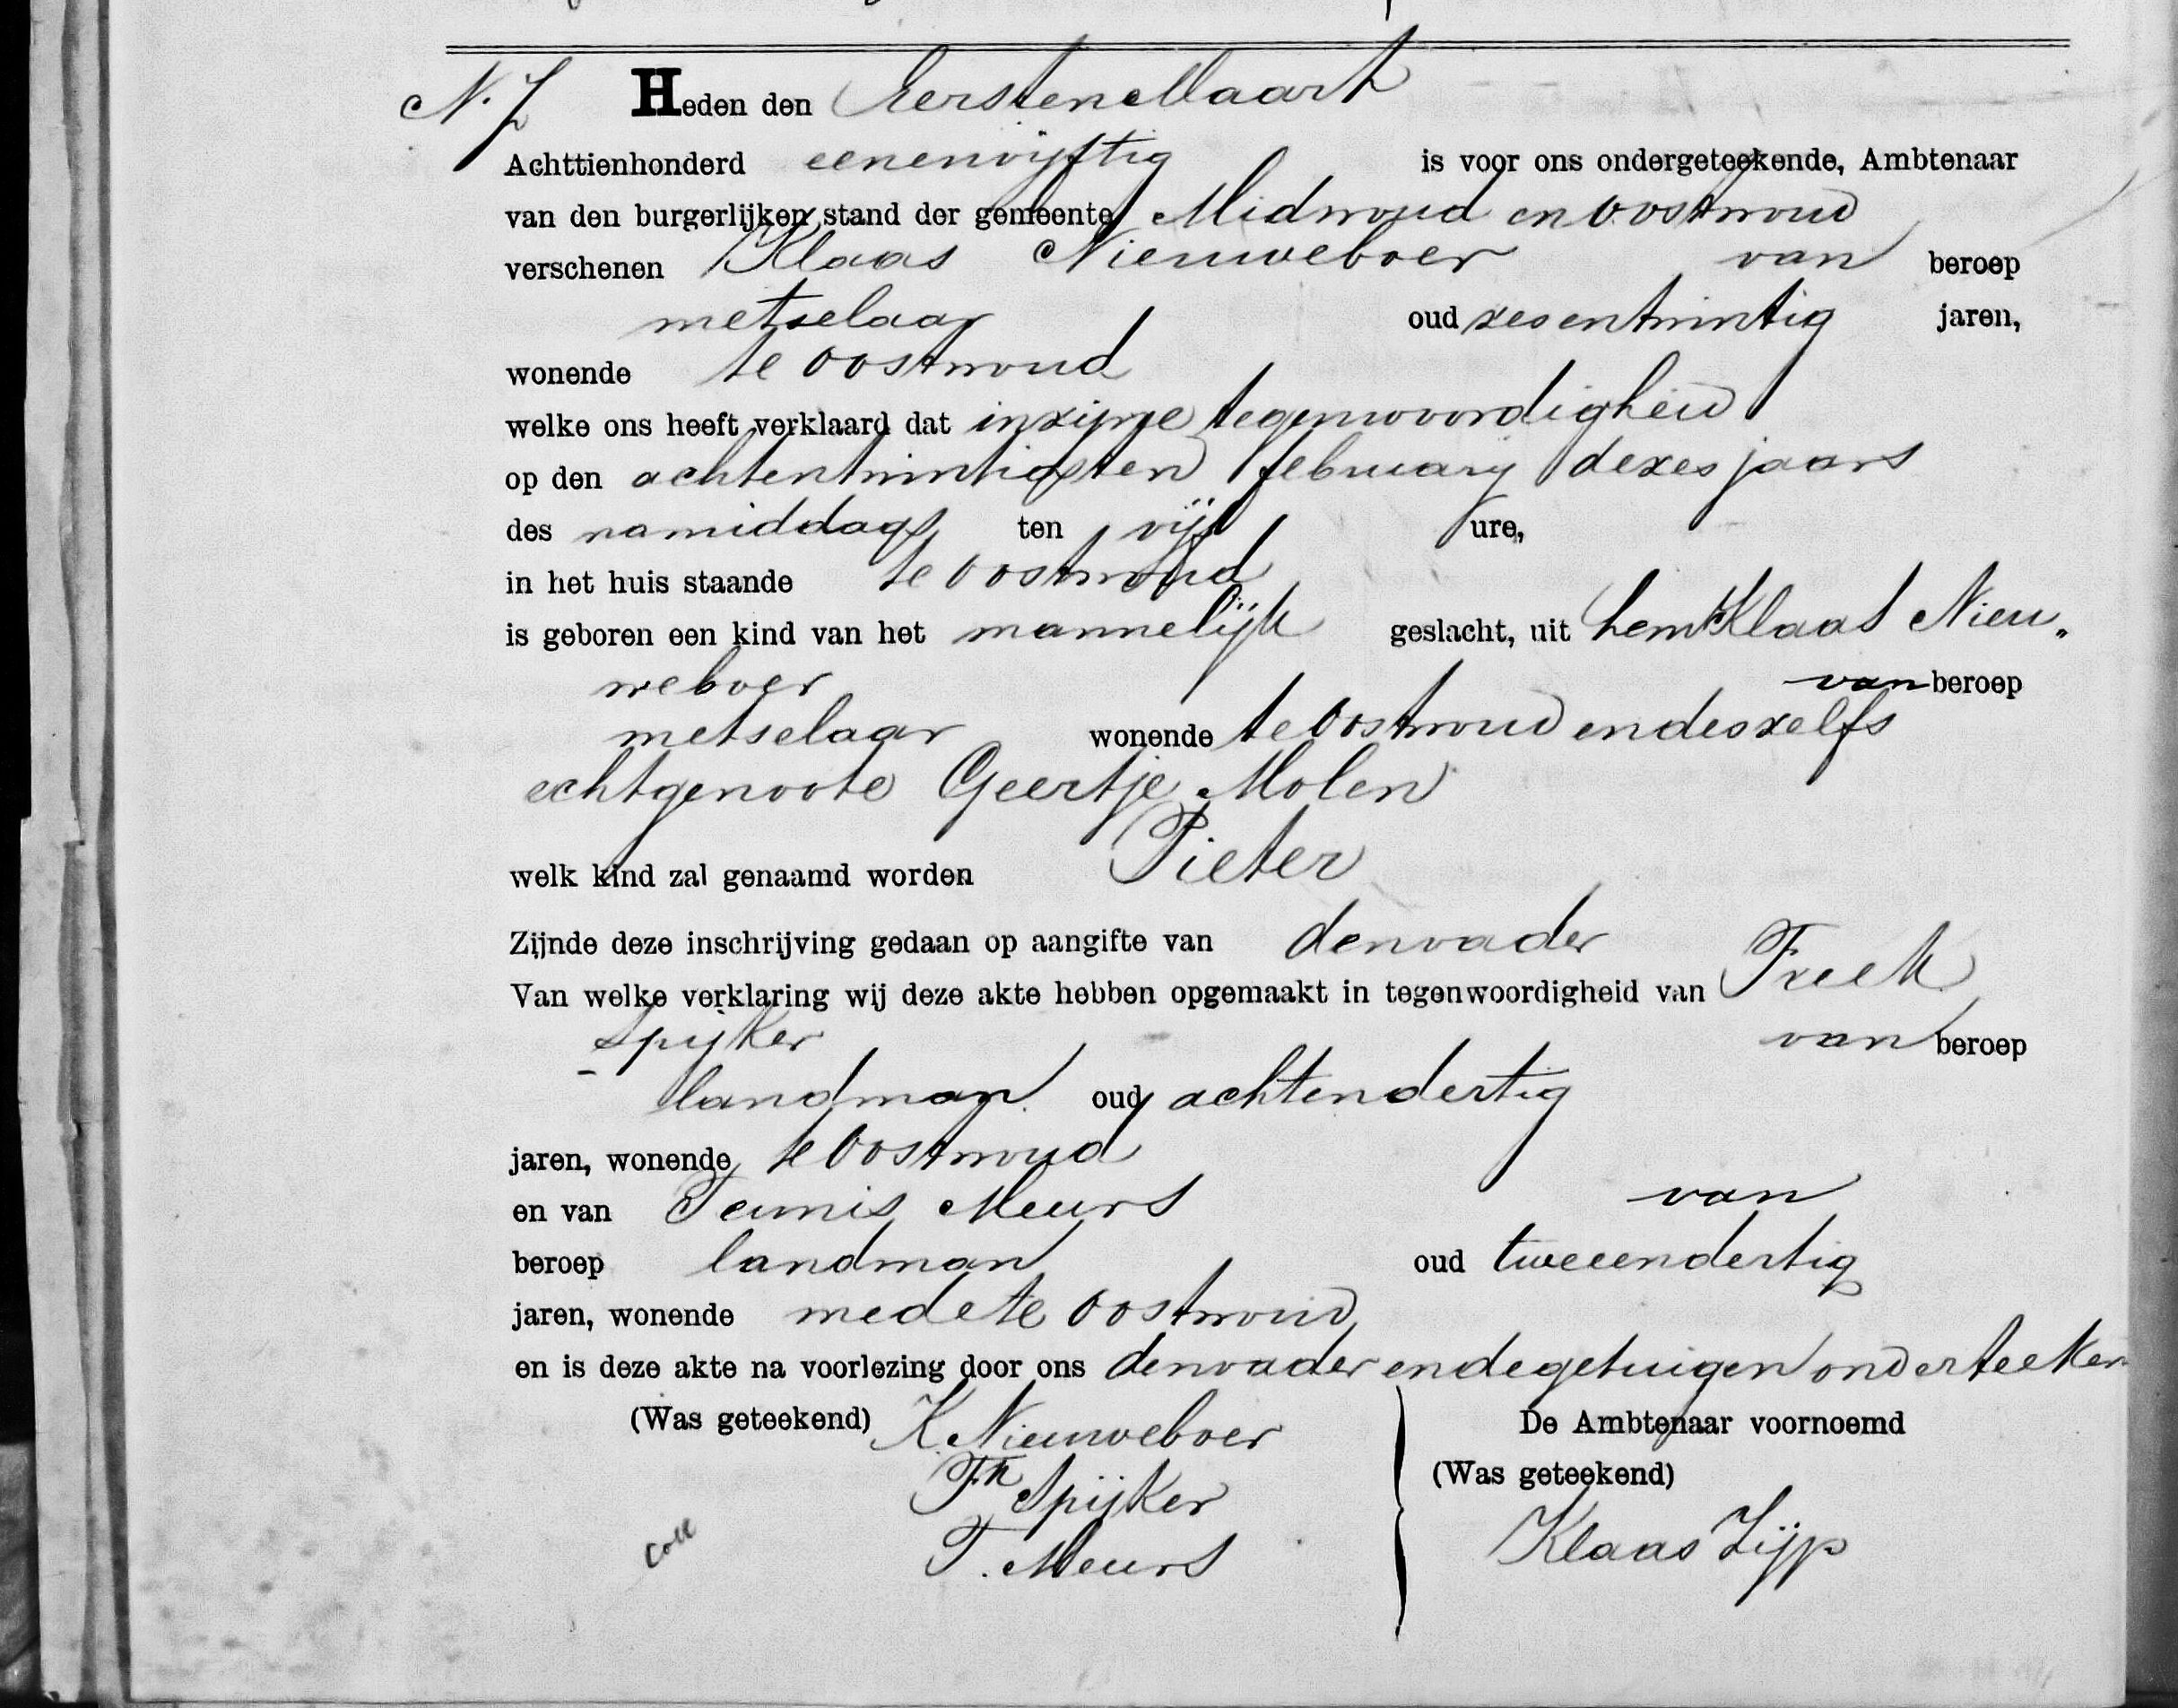 N. 7 Heden den Eersten Maart
Achttienhonderd eenenvijftig is voor ons ondergeteekende, Ambtenaar
van den burgerlijken stand der gemeente Midwoud en Oostwoud
verschenen Klaas Nieuweboer van beroep
metselaar oud zesentwintig jaren,
wonende te Oostwoud
welke ons heeft verklaard dat in zijne tegenwoordigheid
op den achtentwintigsten february dezes jaars
des namiddags ten vijf ure,
in het huis staande te Oostwoud
is geboren een kind van het mannelijk geslacht, uit hem Klaas Nieu„
weboer van beroep
metselaar wonende te Oostwoud en deszelfs
echtgenoote Geertje Molen
welk kind zal genaamd worden Pieter
Zijnde deze inschrijving gedaan op aangifte van den vader
Van welke verklaring wij deze akte hebben opgemaakt in tegenwoordigheid van Freek
Spijker van beroep
landman oud achtendertig
jaren, wonende te Oostwoud
en van Teunis Meurs van
beroep landman oud tweeendertig
jaren, wonende mede te Oostwoud
en is deze akte na voorlezing door ons den vader en de getuigen onderteeken
(Was geteekend) K. Nieuweboer De Ambtenaar voornoemd
Fk Spijker (Was geteekend)
T. Meurs Klaas Zijp
Coll